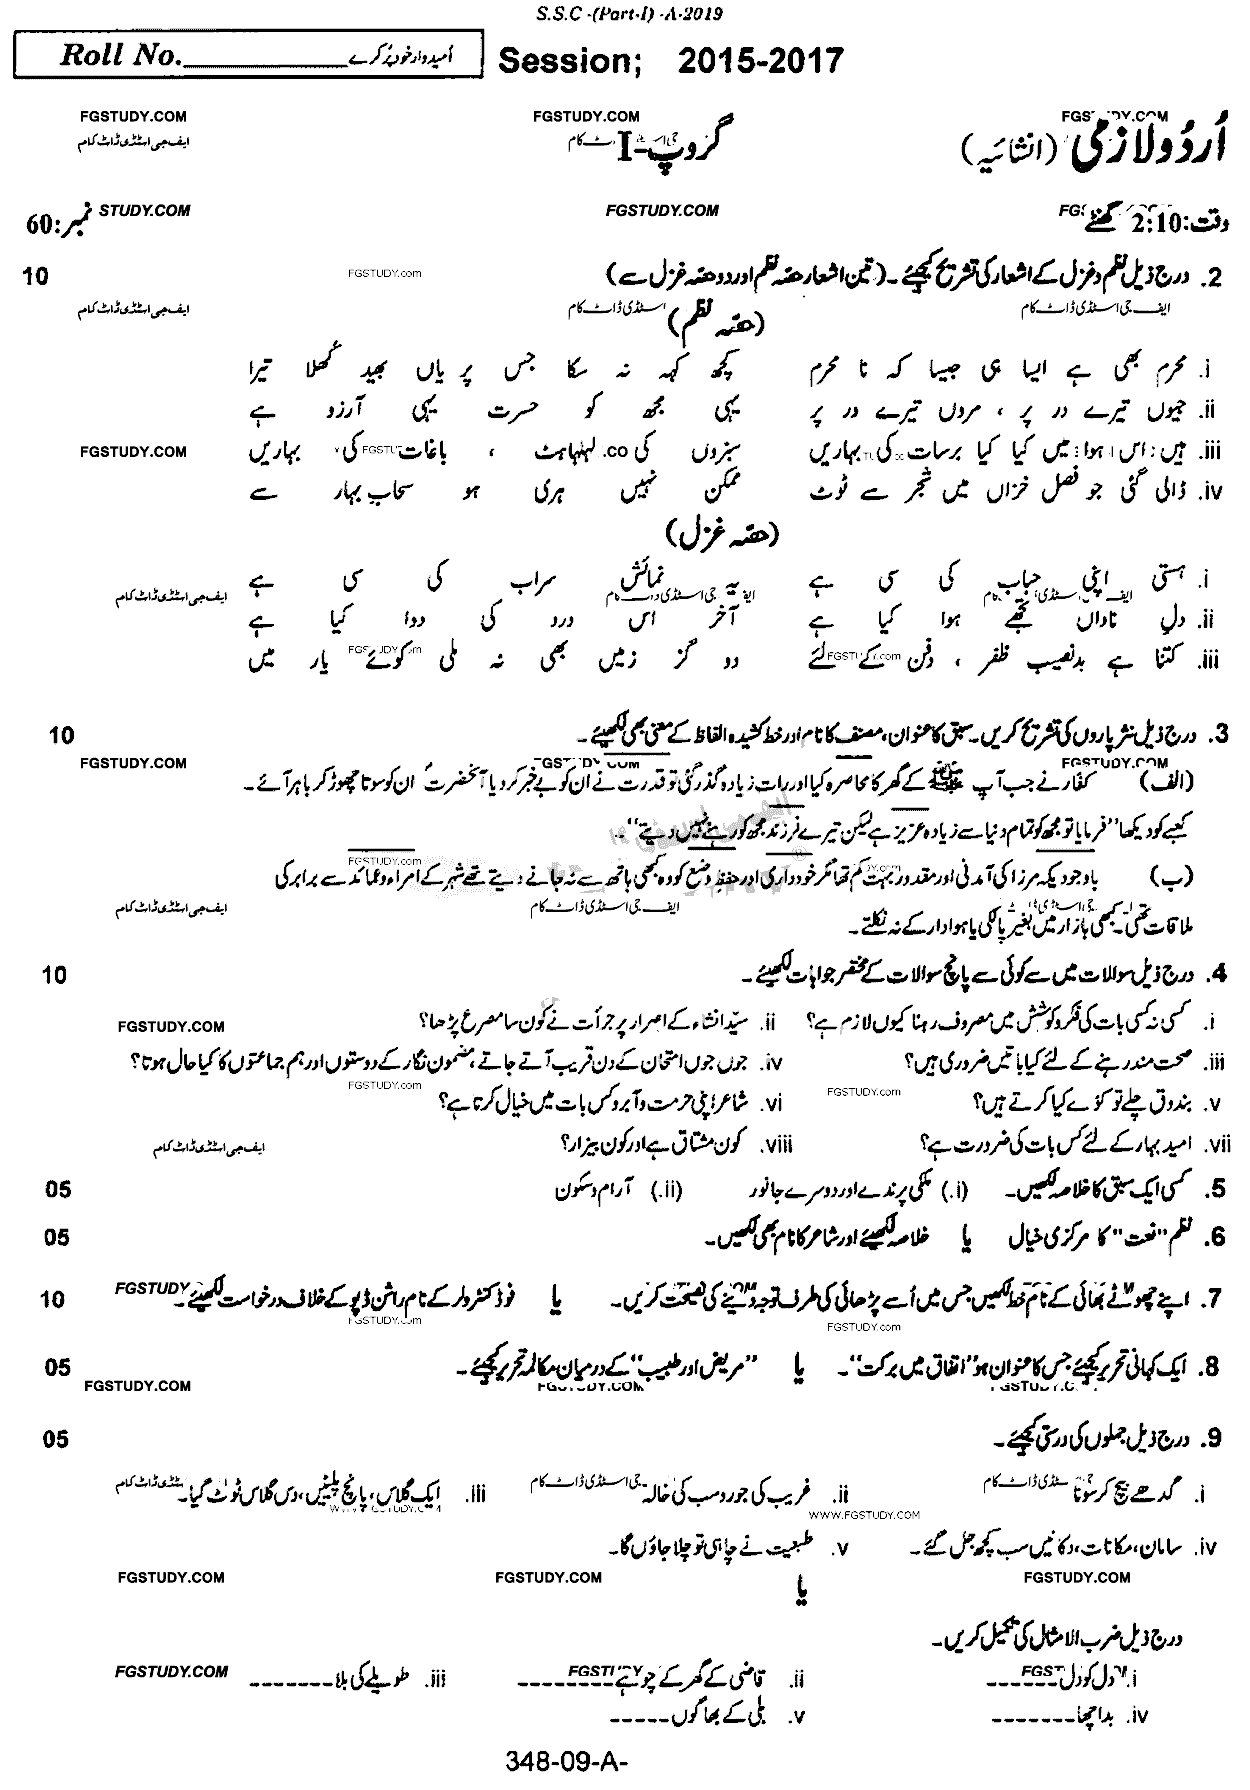 S.S.C -(Part-I) -A-2019
Roll No.______________ اُمیدوار خود پُر کرے Session; 2015-2017
FGSTUDY.COM FGSTUDY.COM
اُردُو لازمی (انشائیہ) گروپ-I ایف جی اسٹڈی ڈاٹ کام
وقت: 2:10 گھنٹے FGSTUDY.COM STUDY.COM نمبر: 60
2. درج ذیل نظم و غزل کے اشعار کی تشریح کیجئے۔ (تین اشعار حصّہ نظم اور دو حصّہ غزل سے) FGSTUDY.com 10
ایف جی اسٹڈی ڈاٹ کام اسٹڈی ڈاٹ کام ایف جی اسٹڈی ڈاٹ کام
(حصّہ نظم)
i. محرم بھی ہے ایسا ہی جیسا کہ نا محرم کچھ کہہ نہ سکا جس پر یاں بھید کُھلا تیرا
ii. جیوں تیرے در پر ، مروں تیرے در پر یہی مجھ کو حسرت یہی آرزو ہے
iii. ہیں اس ہوا میں کیا کیا برسات کی بہاریں سبزوں کی لہلہاہٹ ، باغات کی بہاریں FGSTUDY.COM
iv. ڈالی گئی جو فصل خزاں میں شجر سے ٹوٹ ممکن نہیں ہری ہو سحاب بہار سے
(حصّہ غزل)
i. ہستی اپنی حباب کی سی ہے یہ نمائش سراب کی سی ہے
ایف جی اسٹڈی ڈاٹ کام
ii. دلِ ناداں تجھے ہوا کیا ہے آخر اس درد کی دوا کیا ہے
iii. کتنا ہے بدنصیب ظفر ، دفن کے لئے دو گز زمیں بھی نہ ملی کوئے یار میں
3. درج ذیل نثر پاروں کی تشریح کریں۔ سبق کا عنوان، مصنف کا نام اور خط کشیدہ الفاظ کے معنی بھی لکھیئے۔ 10
FGSTUDY.COM FGSTUDY.COM FGSTUDY.COM
(الف) کفار نے جب آپ ﷺ کے گھر کا محاصرہ کیا اور رات زیادہ گذر گئی تو قدرت نے ان کو بے خبر کر دیا آنحضرتؐ ان کو سوتا چھوڑ کر باہر آئے۔
کعبے کو دیکھا "فرمایا تو مجھ کو تمام دنیا سے زیادہ عزیز ہے لیکن تیرے فرزند مجھ کو رہنے نہیں دیتے"۔
FGSTUDY.com
(ب) باوجودیکہ مرزا کی آمدنی اور مقدور بہت کم تھا مگر خودداری اور حفظِ وضع کو وہ کبھی ہاتھ سے نہ جانے دیتے تھے شہر کے امراء و عمائد سے برابر کی
ایف جی اسٹڈی ڈاٹ کام ایف جی اسٹڈی ڈاٹ کام
ملاقات تھی۔ کبھی بازار میں بغیر پالکی یا ہوادار کے نہ نکلتے۔
4. درج ذیل سوالات میں سے کوئی سے پانچ سوالات کے مختصر جوابات لکھیئے۔ 10
i. کسی نہ کسی بات کی فکر و کوشش میں مصروف رہنا کیوں لازم ہے؟ ii. سیّد انشاء کے اصرار پر جرأت نے کون سا مصرع پڑھا؟ FGSTUDY.COM
iii. صحت مند رہنے کے لئے کیا باتیں ضروری ہیں؟ iv. جوں جوں امتحان کے دن قریب آتے جاتے، مضمون نگار کے دوستوں اور ہم جماعتوں کا کیا حال ہوتا؟
FGSTUDY.com FGSTUDY.com
v. بندوق چلے تو کوّے کیا کرتے ہیں؟ vi. شاعر اپنی حرمت و آبرو کس بات میں خیال کرتا ہے؟
vii. امید بہار کے لئے کس بات کی ضرورت ہے؟ viii. کون مشتاق ہے اور کون بیزار؟ ایف جی اسٹڈی ڈاٹ کام
5. کسی ایک سبق کا خلاصہ لکھیں۔ (i.) ملکی پرندے اور دوسرے جانور (ii.) آرام و سکون 05
6. نظم "نعت" کا مرکزی خیال یا خلاصہ لکھیئے اور شاعر کا نام بھی لکھیں۔ 05
7. اپنے چھوٹے بھائی کے نام خط لکھیں جس میں اُسے پڑھائی کی طرف توجہ دینے کی نصیحت کریں۔ یا فوڈ کنٹرولر کے نام راشن ڈپو کے خلاف درخواست لکھیئے۔ 10
FGSTUDY.com FGSTUDY.com
8. ایک کہانی تحریر کیجئے جس کا عنوان ہو "اتفاق میں برکت"۔ یا "مریض اور طبیب" کے درمیان مکالمہ تحریر کیجئے۔ 05
FGSTUDY.COM FGSTUDY.COM FGSTUDY.COM
9. درج ذیل جملوں کی درستی کیجئے۔ 05
i. گدھے بیچ کر سونا ii. غریب کی جورو سب کی خالہ iii. ایک گلاس، پانچ پلیٹیں، دس گلاس ٹوٹ گیا۔
WWW.FGSTUDY.COM
iv. سامان، مکانات، دکانیں سب کچھ جل گئے۔ v. طبیعت نے چاہی تو چلا جاؤں گا۔
FGSTUDY.COM FGSTUDY.COM FGSTUDY.COM
یا
درج ذیل ضرب الامثال کی تکمیل کریں۔
i. دل کو دل------ ii. قاضی کے گھر کے چوہے-------- iii. طویلے کی بلا------- FGSTUDY.COM
iv. بد اچھا------- v. بلی کے بھاگوں-----
348-09-A-